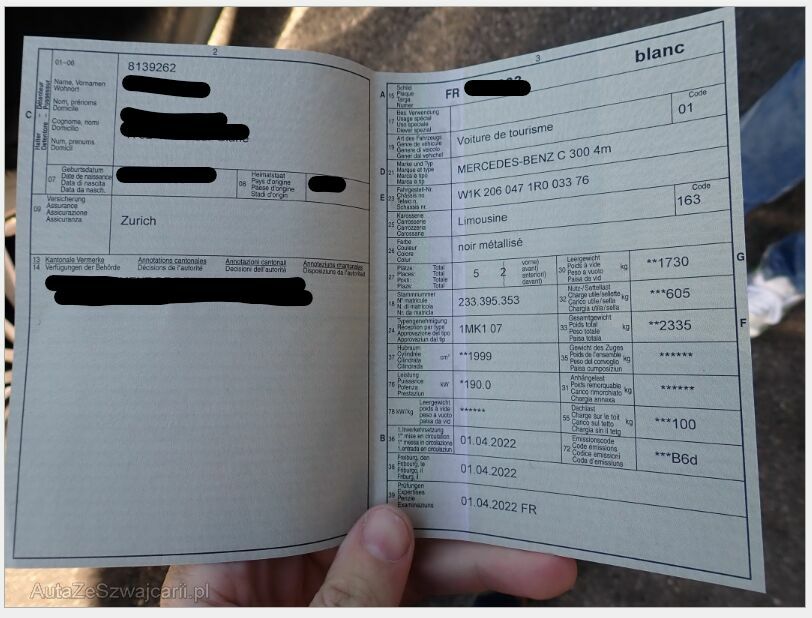 2
01-06
8139262
Name, Vornamen
Wohnort
Nom, prénoms
Domicile
Cognome, nomi
Domicilio
Num, prenums
Domicil
C
Halter - Détenteur
Detentore - Possessur
07
Geburtsdatum
Date de naissance
Data di nascita
Data da nasch.
08
Heimatstaat
Pays d'origine
Paese d'origine
Stadi d'origin
09
Versicherung
Assurance
Assicurazione
Assicuranza
Zurich
13 Kantonale Vermerke Annotations cantonales Annotazioni cantonali Annotaziuns chantunalas
14 Verfügungen der Behörde Décisions de l'autorité Decisioni dell'autorità Disposiziuns da l'autoritad
3
blanc
A 15
Schild
Plaque
Targa
Numer
FR
17
Bes. Verwendung
Usage spécial
Uso speciale
Diever spezial
Code
01
19
Art des Fahrzeugs
Genre de véhicule
Genere di veicolo
Gener dal vehichel
Voiture de tourisme
D 21
Marke und Typ
Marque et type
Marca e tipo
Marca e tip
MERCEDES-BENZ C 300 4m
E 23
Fahrgestell-Nr.
Châssis no
Telaio n.
Schassis nr.
W1K 206 047 1R0 033 76
25
Karosserie
Carrosserie
Carrozzeria
Carossaria
Limousine
Code
163
26
Farbe
Couleur
Colore
Colur
noir métallisé
27
Plätze: Total
Places: Total
Posti: Totale
Plazs: Total
5 2
vorne)
avant)
anteriori)
davant)
30
Leergewicht
Poids à vide
Peso a vuoto
Paisa da vid
kg
**1730
G
18
Stammnummer
N° matricule
N. di matricola
Nr. da matricla
233.395.353
32
Nutz-/Sattellast
Charge utile/sellette
Carico utile/sella
Chargia utila/sella
kg
***605
24
Typengenehmigung
Réception par type
Approvazione del tipo
Approvaziun dal tip
1MK1 07
33
Gesamtgewicht
Poids total
Peso totale
Paisa totala
kg
**2335
F
37
Hubraum
Cylindrée
Cilindrata
Cilindrada
cm³
**1999
35
Gewicht des Zuges
Poids de l'ensemble
Peso del convoglio
Paisa cumposiziun
kg
******
76
Leistung
Puissance
Potenza
Prestaziun
kW
*190.0
31
Anhängelast
Poids remorquable
Carico rimorchiato
Chargia annexa
kg
******
78 kW/kg
Leergewicht
poids à vide
peso a vuoto
paisa da vid
******
55
Dachlast
Charge sur le toit
Carico sul tetto
Chargia sin il tetg
kg
***100
B 36
1. Inverkehrsetzung
1re mise en circulation
1a messa in circolazione
1. entrada en circulaziun
01.04.2022
72
Emissionscode
Code émissions
Codice emissioni
Code d'emissiuns
***B6d
38
Freiburg, den
Fribourg, le
Friburgo, il
Friburg, il
01.04.2022
39
Prüfungen
Expertises
Perizie
Examinaziuns
01.04.2022 FR
AutaZeSzwajcarii.pl